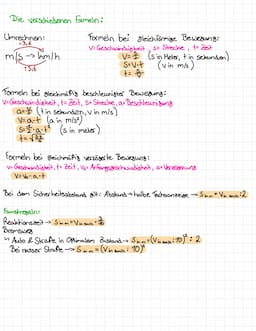 Die verschiedenen Formeln:
Umrechnen:
·3,6
m/s → km/h
:3,6
Formeln bei gleichförmige Bewegung:
v = Geschwindigkeit, s = Strecke, t = Zeit
v = s/t (s in Meter, t in sekunden)
s = v·t (v in m/s)
t = s/v
Formeln bei gleichmäßig beschleunigter Bewegung:
v = Geschwindigkeit, t = Zeit, s = Strecke, a = Beschleunigung
a = v/t (t in sekunden, v in m/s)
v = a·t (a in m/s²)
s = ½·a·t² (s in meter)
Formeln bei gleichmäßig verzögerte Bewegung:
v = Geschwindigkeit, t = Zeit, v₀ = Anfangsgeschwindigkeit, a = Verzögerung
v = v₀ - a·t
Bei dem Sicherheitsabstand gilt: Abstand → halbe Tachoanzeige →
Faustregeln:
Reaktionszeit →
Bremsweg
↳ Auto & Straße in Optimalem Zustand →
Bei nasser Straße →